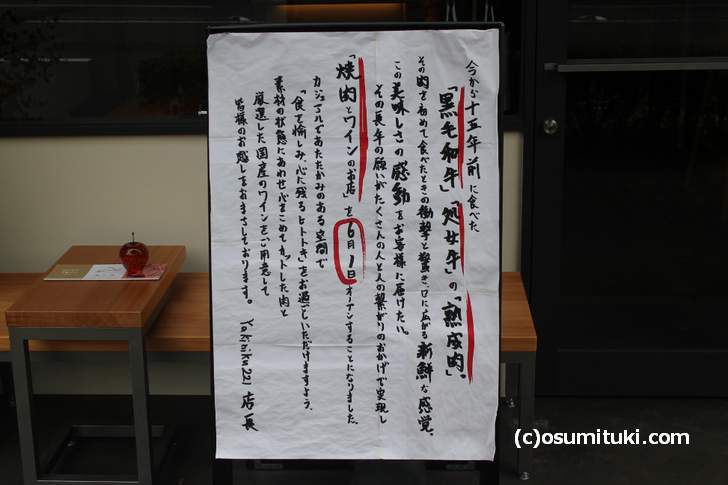 今から十五年前に食べた
「黒毛和牛」「処女牛」の「熟成肉」
その肉を初めて食べたときの衝撃と驚き、口に広がる新鮮な感覚、
この美味しさの感動をお客様に届けたい。
その長年の願いがたくさんの人と人の繋がりのおかげで実現し
「焼肉とワインのお店」を6月1日オープンすることになりました。
カジュアルであたたかみのある空間で
「食を愉しみ、心に残るヒトトキ」をお過ごしいただけますよう、
素材の状態にあわせ心をこめてカットした肉と
厳選した国産のワインをご用意して
皆様のお越しをおまちしております。
Yakiniku221 店長
(c)osumituki.com